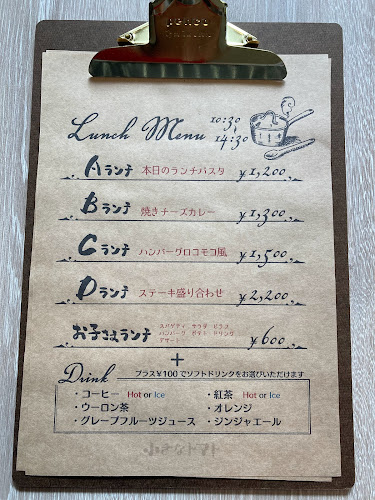 PENCO
Lunch Menu 10:30
14:30
Aランチ 本日のランチパスタ ¥1,200
Bランチ 焼きチーズカレー ¥1,300
Cランチ ハンバーグロコモコ風 ¥1,500
Dランチ ステーキ盛り合わせ ¥2,200
お子さまランチ スパゲティ サラダ ピラフ
ハンバーグ ポテト ドリンク
デザート ¥600
+
Drink プラス¥100でソフトドリンクをお選びいただけます
・コーヒー Hot or Ice ・紅茶 Hot or Ice
・ウーロン茶 ・オレンジ
・グレープフルーツジュース ・ジンジャエール